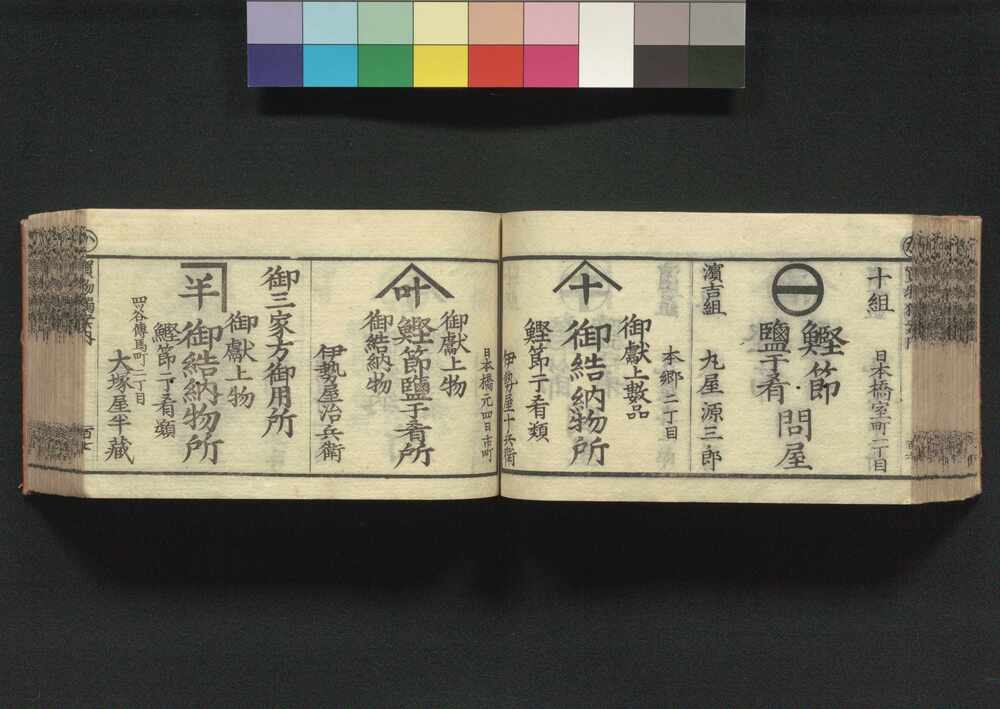 十組
日本橋室町一丁目
一
鰹節
鹽干肴
問屋
濱吉組
丸屋源三郎
本郷二丁目
御獻上數品
十
御結納物所
鰹節干肴類
伊勢屋十兵衛
日本橋元四日市町
御獻上物
叶
鰹節鹽干肴所
御結納物
伊勢屋治兵衛
御三家方御用所
御獻上物
半
御結納物所
鰹節干肴類
四谷傳馬町一丁目
大塚屋半藏